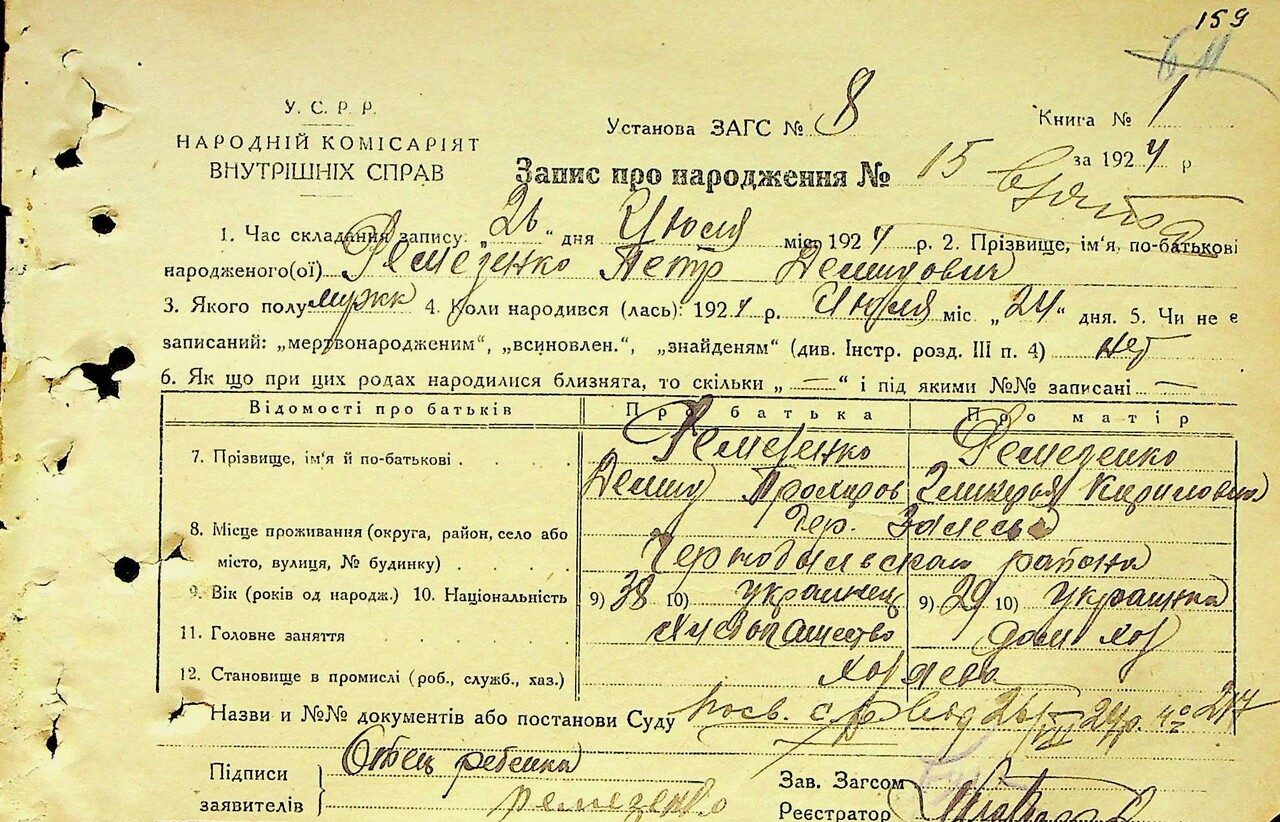 159
У. С. Р. Р.
НАРОДНІЙ КОМІСАРІЯТ
ВНУТРІШНІХ СПРАВ
Установа ЗАГС № 8
Книга № 1
за 1924 р
Запис про народження № 15
1. Час складання запису „26“ дня Июля міс. 1924 р. 2. Прізвище, ім'я, по-батькові
народженого(ої) Ремезенко Петр Демидович
3. Якого полу мужск 4. Коли народився (лась): 1924 р. Июля міс. „24“ дня. 5. Чи не є
записаний: „мертвонародженим“, „всиновлен.“, „знайденям“ (див. Інстр. розд. III п. 4) нет
6. Як що при цих родах народилися близнята, то скільки „—“ і під якими №№ записані —
Відомості про батьків Про батька Про матір
7. Прізвище, ім'я й по-батькові Ремезенко Ремезенко
Демид Прохоров Кириловна
8. Місце проживання (округа, район, село або дер. Залесье
місто, вулиця, № будинку) Чернобыльского района
9. Вік (років од народж.) 10. Національність 9) 38 10) украинец 9) 29 10) украинка
11. Головне заняття хлебопашество дом. хоз
12. Становище в промислі (роб., служб., хаз.) хозяева
Назви и №№ документів або постанови Суду 26/VII 24р. №
Підписи
заявителів
Отец ребенка
ремезенко
Зав. Загсом
Реєстратор